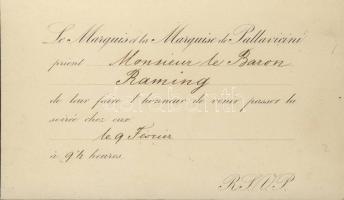 Le Marquis et la Marquise de Pallavicini
prient Monsieur le Baron
Raming
de leur faire l'honneur de venir passer la
soirée chez eux
le 9 Fevrier
à 9½ heures.
R.S.V.P.